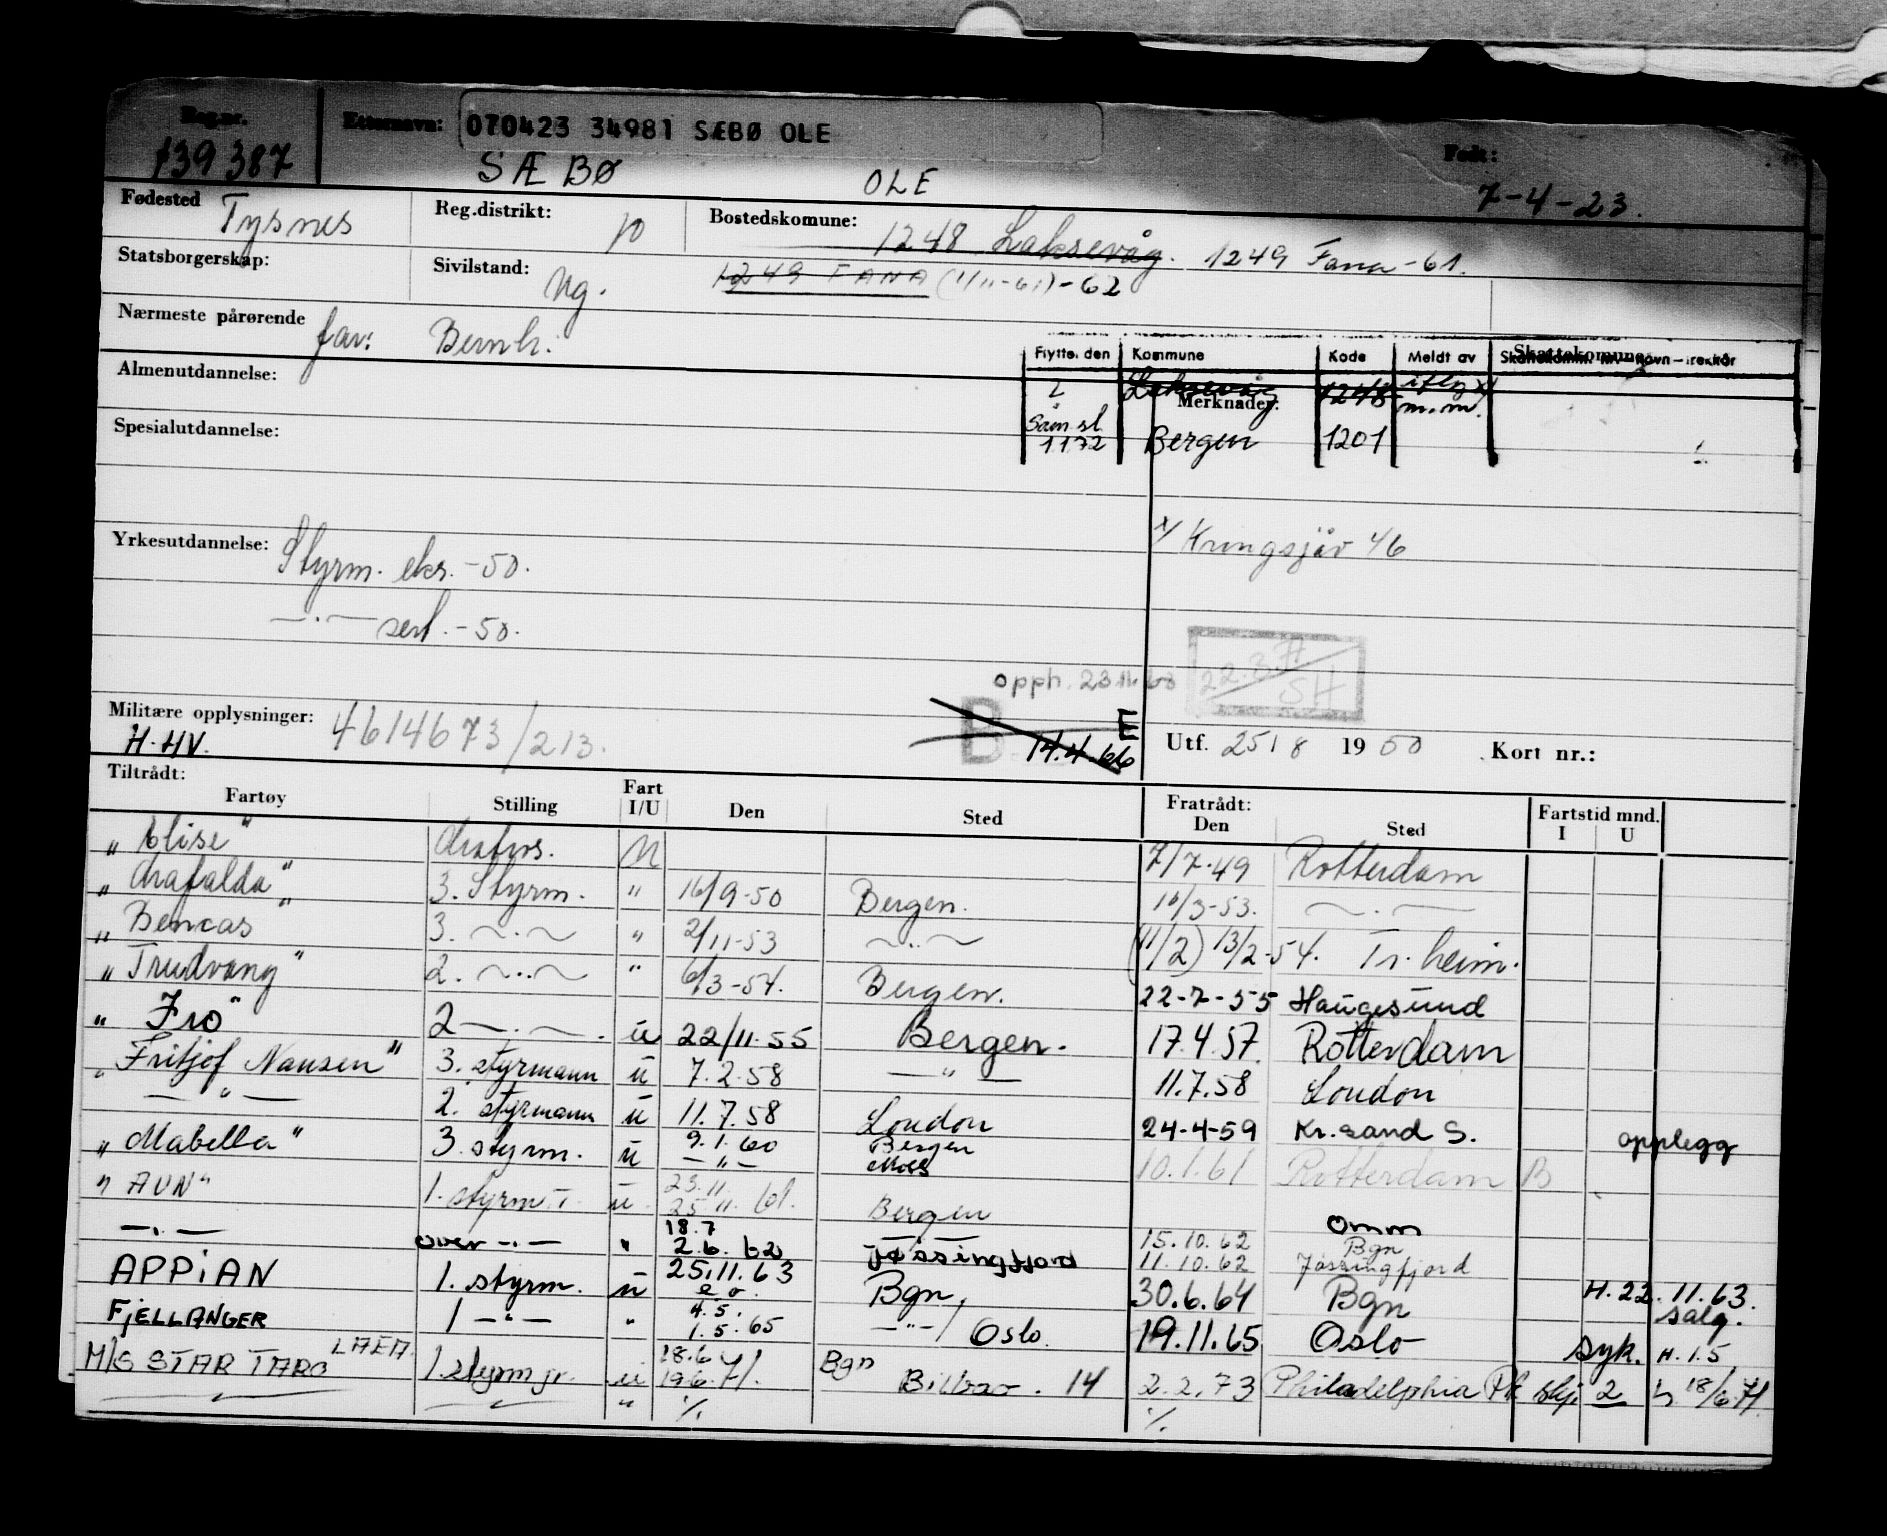 Reg.nr. Etternavn: 070423 34981 SÆBØ OLE Født:
139387 SÆBØ OLE 7-4-23.
Fødested Tysnes Reg.distrikt: 10 Bostedskomune: 1248 Laksevåg. 1249 Fana-61.
Statsborgerskap: Sivilstand: Ug. 1249 FANA (1/11-61)-62
Nærmeste pårørende far: Bernh.
Flytte. den Kommune Kode Meldt av
Almenutdannelse: Laksevåg 1248 m.m.
Merknader:
Spesialutdannelse: 1172 Bergen 1201
Yrkesutdannelse: Styrm. eks. -50. x/ Kringsjåv 46
—.— sert. -50.
opph. 23 11 63 22.3.71 SH
Militære opplysninger: 4614673/213. B E
H.HV. 14.4.66 Utf. 25/8 1950 Kort nr.:
Tiltrådt: Fratrådt: Fartstid mnd.
Fartøy Stilling Fart I/U Den Sted Den Sted I U
"Elise" Matros. U 7/7-49 Rotterdam
"Mafalda" 3. Styrm. " 16/9-50 Bergen. 10/3-53. —.—
"Bencas" 3. —.— " 2/11-53 —..— (11/2) 13/2-54. Tr.heim.
"Trudvang" 2. —..— " 6/3-54. Bergen. 22-7-55 Haugesund
"Fro" 2 —.—. u 22/11.55 Bergen. 17.4.57. Rotterdam
"Fritjof Nansen" 3. styrmann u 7.2.58 —"— 11.7.58 London
—"— 2. styrmann u 11.7.58 London 24-4-59 Kr.sand S. opplegg
"Mabella" 3. styrm. u 9.1.60 Bergen 10.1.61 Rotterdam B
—"— Moss
"AUN" 1. styrm. u. 23.11. 25.11.61. Bergen
—.— over —.— " 18.7 2.6.62 Jøssingfjord 15.10.62 11.10.62 Omm Bgn Jøssingfjord
APPIAN 1. styrm. u 25.11.63 Bgn, 30.6.64 Bgn H.22.11.63. salg.
FJELLANGER 1 —"— " 4.5. 1.5.65 —"— Oslo. 19.11.65 Oslo syk. H.1.5
M/S STAR TARO LAEA. 1.styrm jr. u 18.6 19.6.71. Bgn Bilbao. 14 2.2.73 Philadelphia 2 18/6.71.
" ·/. ·/.